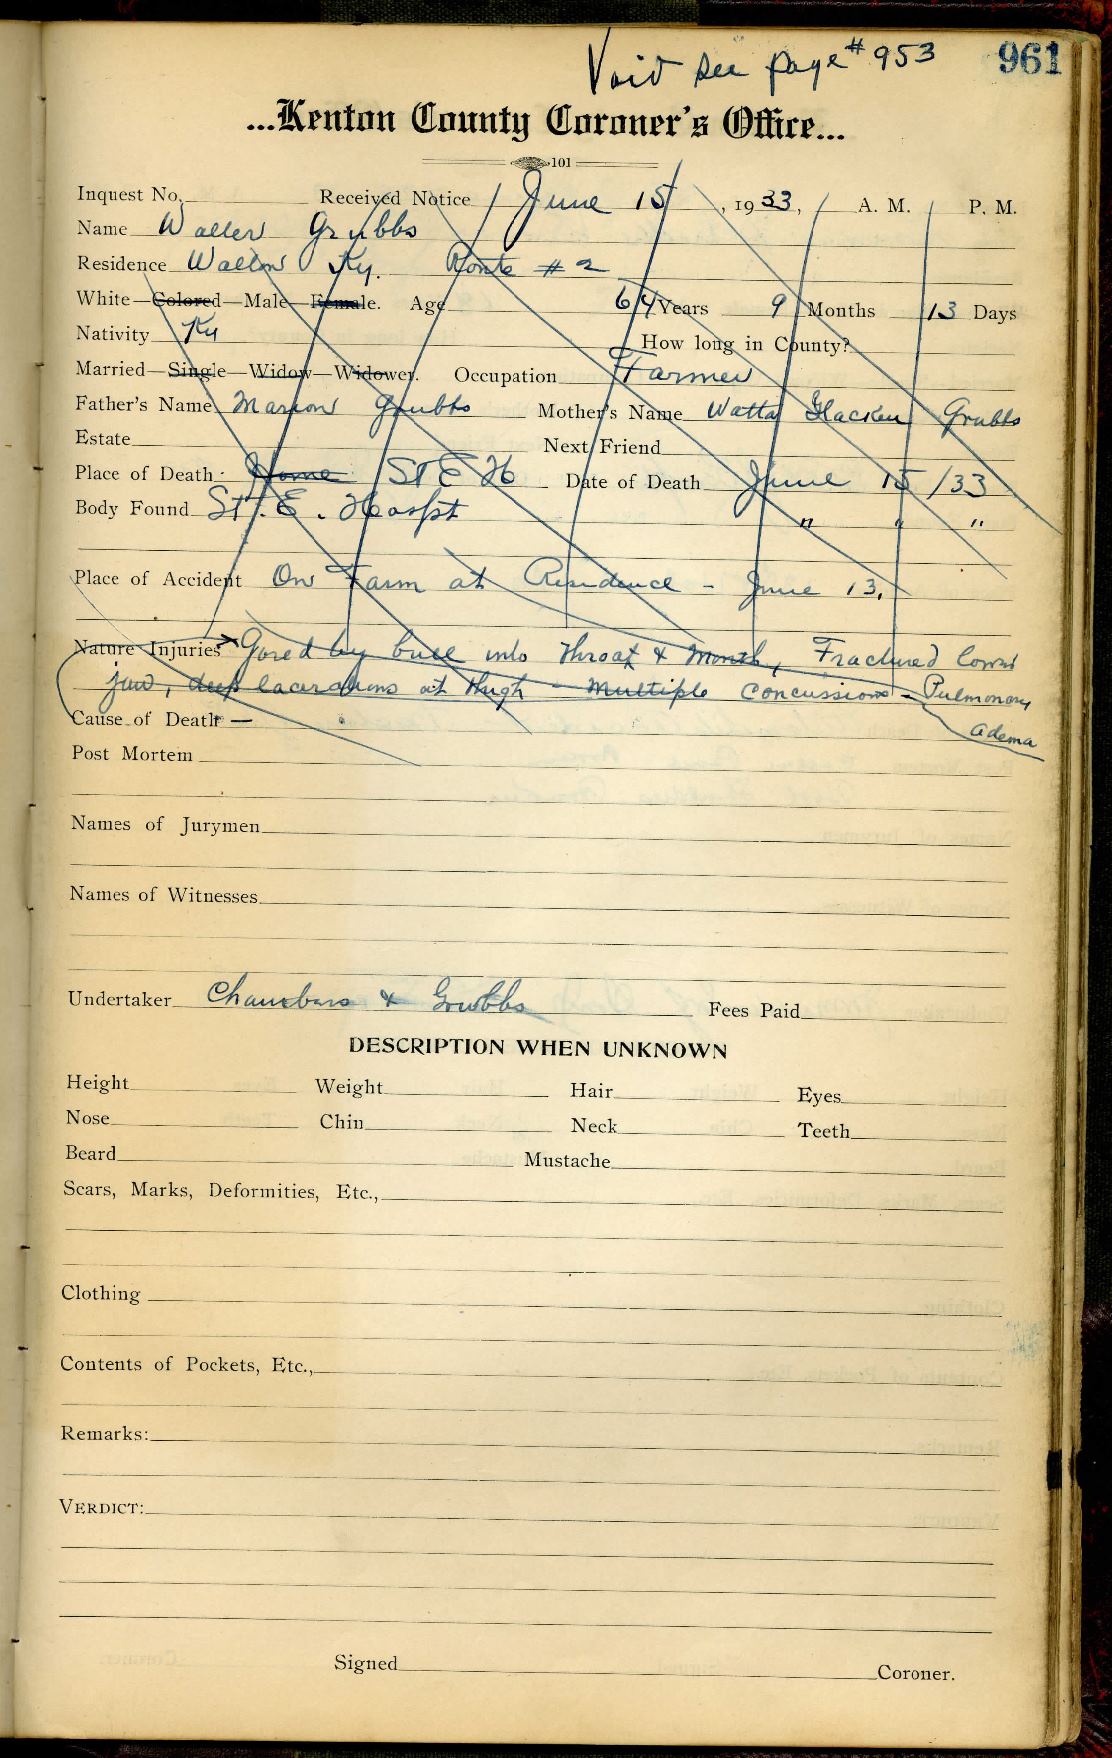 Void see page #953 961
...Kenton County Coroner's Office...
101
Inquest No. Received Notice June 15, 1933, A. M. P. M.
Name Waller Grubbs
Residence Walton Ky. Route #2
White—Colored—Male—Female. Age 64 Years 9 Months 13 Days
Nativity Ky How long in County?
Married—Single—Widow—Widower. Occupation Farmer
Father's Name Marion Grubbs Mother's Name Watta Glacken Grubbs
Estate Next Friend
Place of Death Home St E H Date of Death June 15/33
Body Found St. E. Hospt " " "
Place of Accident On Farm at Residence - June 13.
Nature Injuries Gored by bull into Throat & Mouth, Fractured lower
jaw, deep lacerations at thigh - Multiple concussions - Pulmonary
Cause of Death — adema
Post Mortem
Names of Jurymen
Names of Witnesses
Undertaker Chambers & Grubbs Fees Paid
DESCRIPTION WHEN UNKNOWN
Height Weight Hair Eyes
Nose Chin Neck Teeth
Beard Mustache
Scars, Marks, Deformities, Etc.,
Clothing
Contents of Pockets, Etc.,
Remarks:
VERDICT:
Signed Coroner.